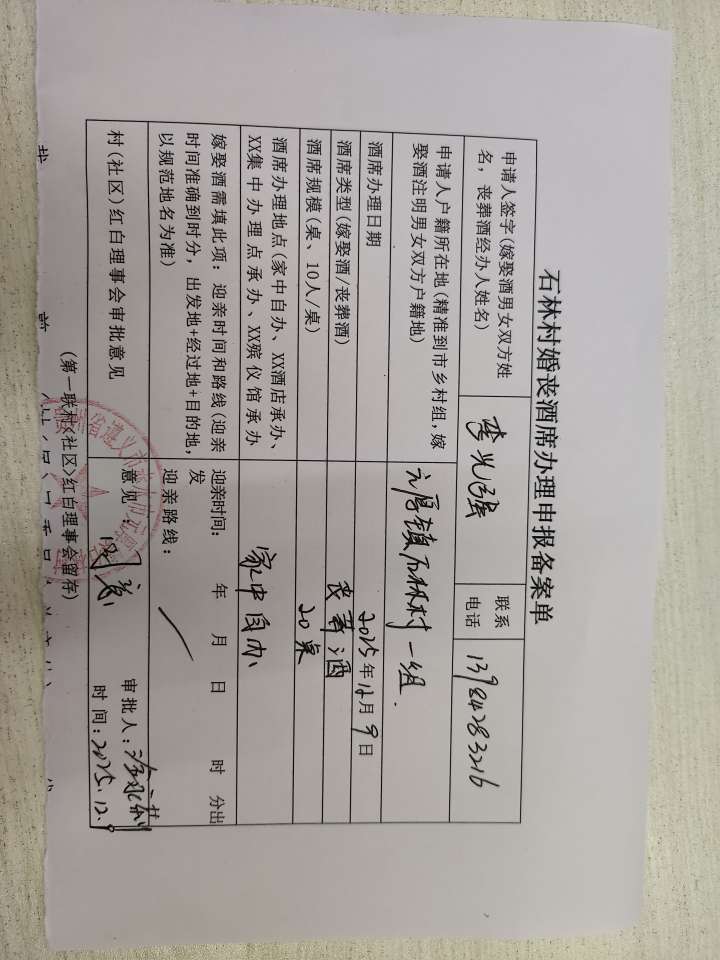 石林村婚丧酒席办理申报备案单
申请人签字(嫁娶酒男女双方姓
名，丧葬酒经办人姓名)
李光强
联系
电话
13984283216
申请人户籍所在地(精准到市乡村组,嫁
娶酒注明男女双方户籍地)
元厚镇石林村一组.
酒席办理日期
2025年12月9日
酒席类型(嫁娶酒/丧葬酒)
丧葬酒
酒席规模(桌、10人/桌)
20桌
酒席办理地点(家中自办、XX酒店承办、
XX集中办理点承办、XX殡仪馆承办
家中自办
嫁娶酒需填此项：迎亲时间和路线(迎亲
时间准确到时分，出发地+经过地+目的地,
以规范地名为准)
迎亲时间： 年 月 日 时 分出
发
迎亲路线：
村(社区)红白理事会审批意见
意见：同意
审批人：
时间：2025.12.9
(第一联村<社区>红白理事会留存)